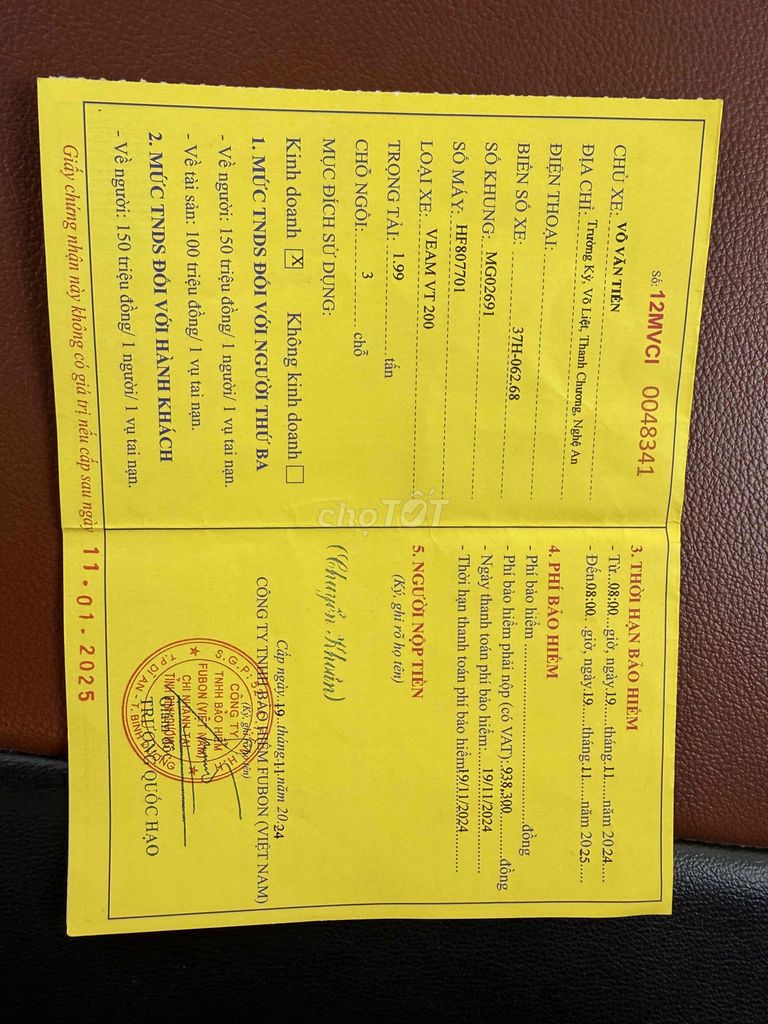 Số: 12MVCI 0048341
CHỦ XE: VÕ VĂN TIẾN
ĐỊA CHỈ: Trường Kỳ, Võ Liệt, Thanh Chương, Nghệ An
ĐIỆN THOẠI:
BIỂN SỐ XE: 37H-062.68
SỐ KHUNG: MG02691
SỐ MÁY: HF807701
LOẠI XE: VEAM VT 200
TRỌNG TẢI: 1.99 tấn
CHỖ NGỒI: 3 chỗ
MỤC ĐÍCH SỬ DỤNG:
Kinh doanh X Không kinh doanh
1. MỨC TNDS ĐỐI VỚI NGƯỜI THỨ BA
- Về người: 150 triệu đồng/ 1 người/ 1 vụ tai nạn.
- Về tài sản: 100 triệu đồng/ 1 vụ tai nạn.
2. MỨC TNDS ĐỐI VỚI HÀNH KHÁCH
- Về người: 150 triệu đồng/ 1 người/ 1 vụ tai nạn.
Giấy chứng nhận này không có giá trị nếu cấp sau ngày 11.01.2025
3. THỜI HẠN BẢO HIỂM
- Từ...08:00...giờ, ngày.19....tháng.11.....năm 2024....
- Đến08:00...giờ, ngày.19....tháng.11.....năm 2025.....
4. PHÍ BẢO HIỂM
- Phí bảo hiểm đồng
- Phí bảo hiểm phải nộp (có VAT): 938,300 đồng
- Ngày thanh toán phí bảo hiểm: 19/11/2024
- Thời hạn thanh toán phí bảo hiểm19/11/2024
5. NGƯỜI NỘP TIỀN
(Ký, ghi rõ họ tên)
(Chuyển Khoản)
Cấp ngày 19 tháng 11 năm 2024
CÔNG TY TNHH BẢO HIỂM FUBON (VIỆT NAM)
(Ký, ghi rõ họ tên)
CÔNG TY
TNHH BẢO HIỂM
FUBON (VIỆT NAM)
CHI NHÁNH TẠI
TP.DĨ AN - T. BÌNH DƯƠNG
TRƯƠNG QUỐC HẠO
chợTỐT